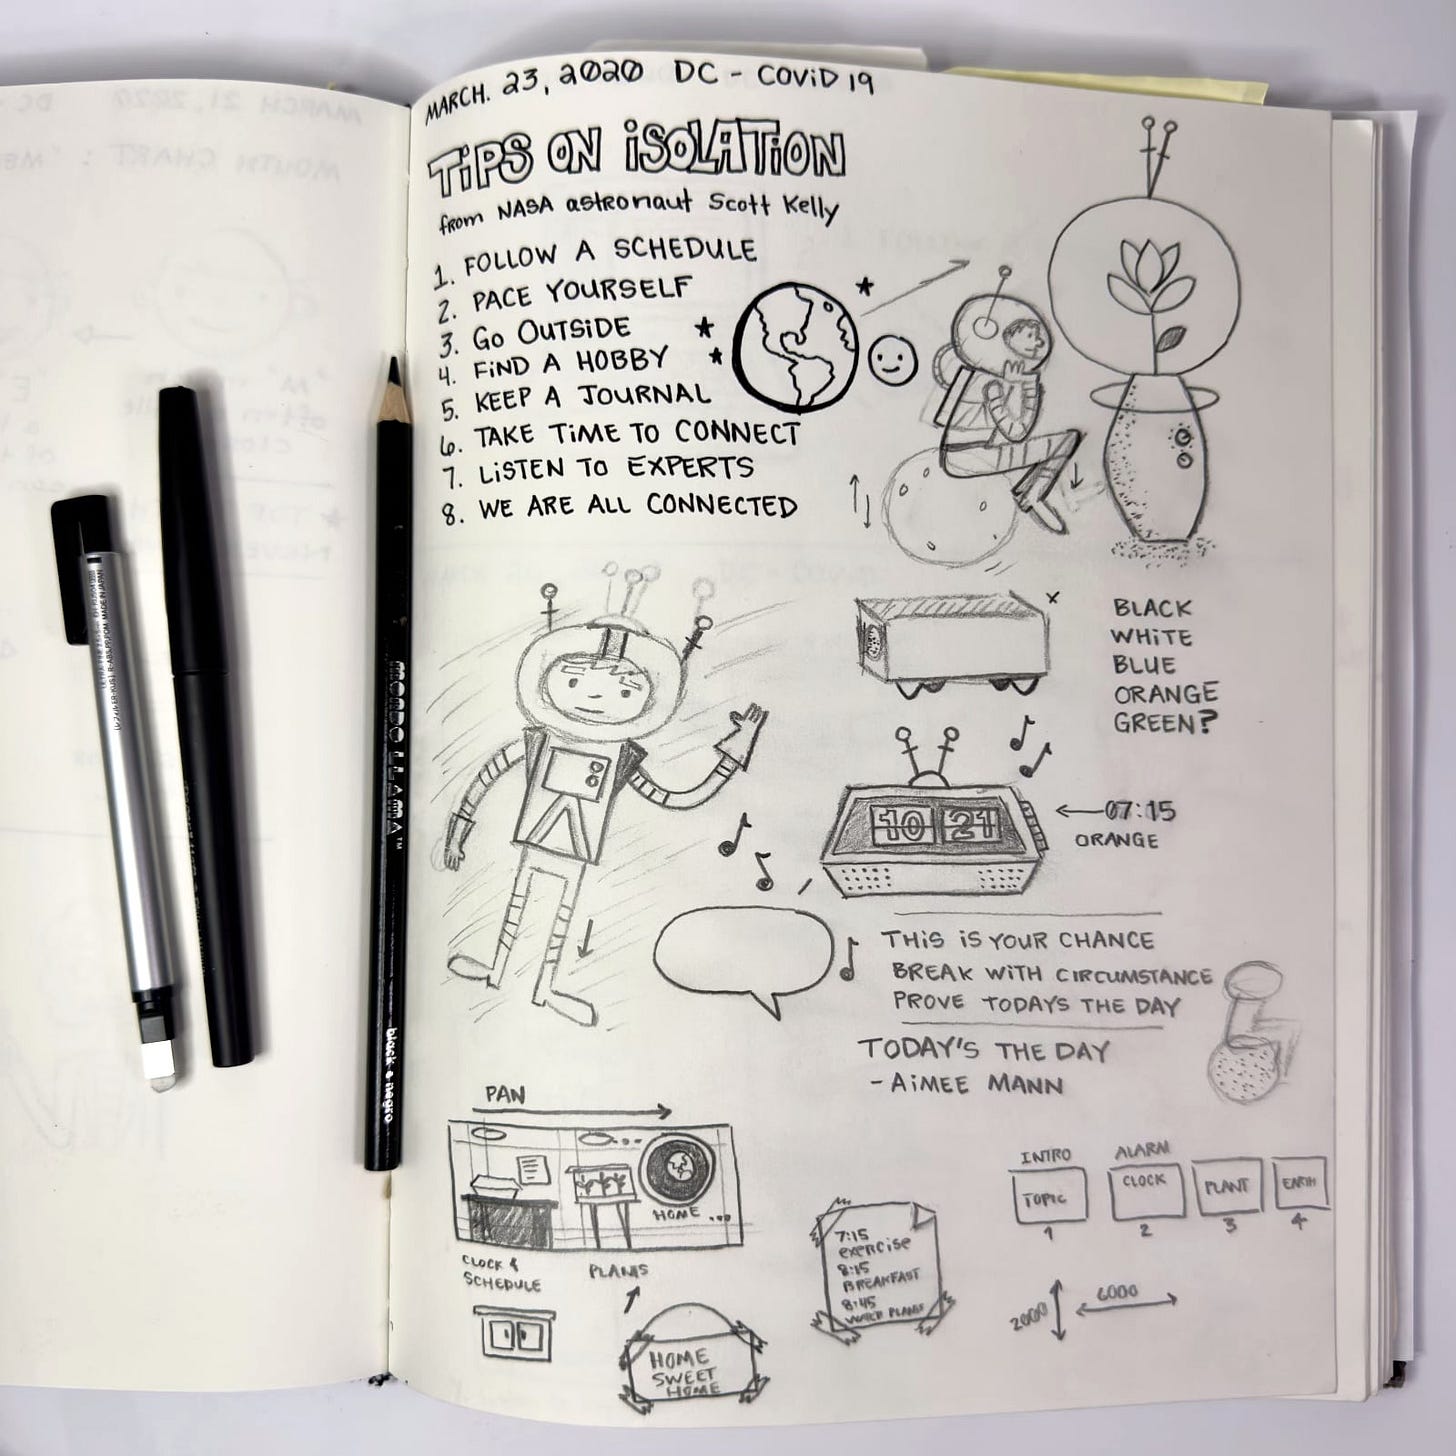 MARCH. 23, 2020 DC - COViD 19
TiPS ON iSOLATiON
from NASA astronaut Scott Kelly
1. FOLLOW A SCHEDULE
2. PACE YOURSELF
3. Go OUTSiDE
4. FiND A HOBBY
5. KEEP A JOURNAL
6. TAKE TiME TO CONNECT
7. LiSTEN TO EXPERTS
8. WE ARE ALL CONNECTED
BLACK
WHiTE
BLUE
ORANGE
GREEN?
10 21
07:15
ORANGE
THiS iS YOUR CHANCE
BREAK WiTH CIRCUMSTANCE
PROVE TODAYS THE DAY
TODAY'S THE DAY
- AiMEE MANN
PAN
HOME ...
CLOCK &
SCHEDULE
PLANTS
HOME
SWEET
HOME
7:15
exercise
8:15
BREAKFAST
8:45
WATER PLANTS
INTRO
TOPIC
1
ALARM
CLOCK
2
PLANT
3
EARTH
4
2000
6000
MONDO LLAMA™
black • negro
MARCH 21, 2020 DC
MOUTH CHART: